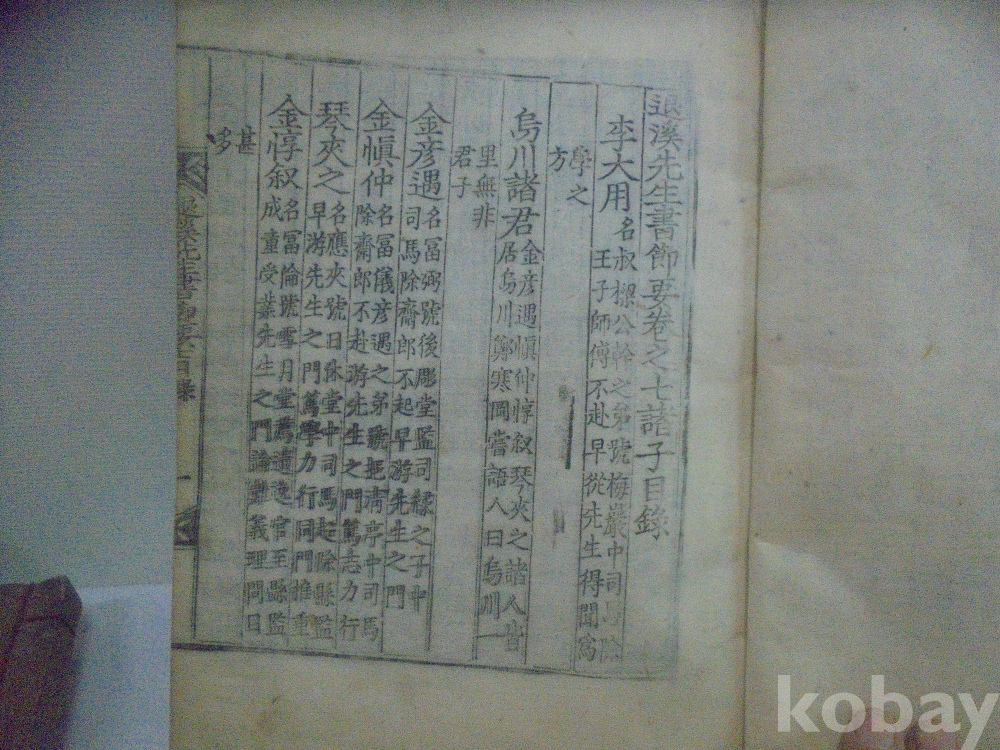 退溪先生書節要卷之七諸子目錄
李大用 名叔樑公幹之弟號梅巖中司馬除
王子師傅不赴早從先生得聞爲
學之
方
烏川諸君 金彦遇愼仲惇叙琴夾之諸人皆
居烏川鄭寒岡嘗語人曰烏川一
里無非
君子
金彦遇 名富弼號後彫堂監司緣之子中
司馬除齋郎不起早游先生之門
金愼仲 名富儀彦遇之弟號挹淸亭中司馬
除齋郎不赴游先生之門篤志力行
琴夾之 名應夾號日休堂中司馬起除縣監
早游先生之門篤學力行同門推重
金惇叙 名富倫號雪月堂薦遺逸官至縣監
成童受業先生之門論難義理問目
甚
多
退溪先生書節要目錄
一
kobay